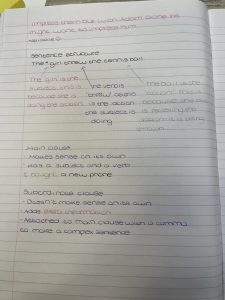 impress them but with Adam alone he
might want to impress him
Sentence structure
The girl threw the tennis ball
The girl is the
subject and is
because she is
doing the action
The verb is
'threw' as this
is the action
the subject is
doing
The ball is the
because the ball
is receiving the
thrown
Main clause
- Makes sense on its own
- Has a subject and a verb
I bought a new phone
Subordinate clause
- Doesn't make sense on its own
- Adds extra information
- Attached to main clause with a comma
to make a complex sentence